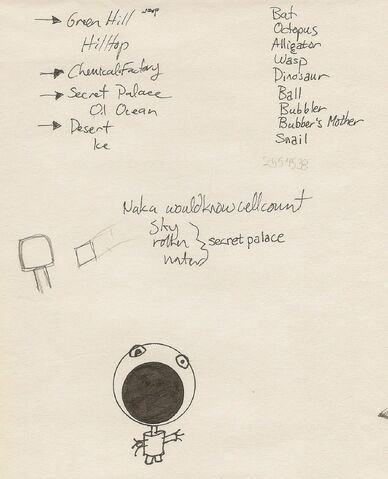 Green Hill
HillTop
Chemical Factory
Secret Palace
Oil Ocean
Desert
Ice
Bat
Octopus
Alligator
Wasp
Dinosaur
Ball
Bubbler
Bubber's Mother
Snail
Naka would know cell count
sky
water
secret palace